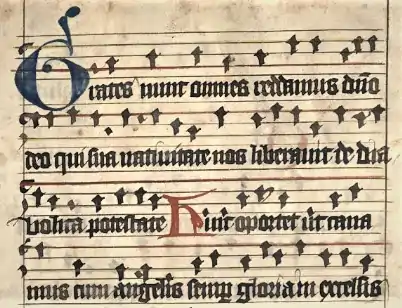 Grates nunc omnes reddamus dño
deo qui sua natiuitate nos liberauit de dia
bolica potestate Huic oportet ut cana
mus cum angelis semp gloria in excelsis